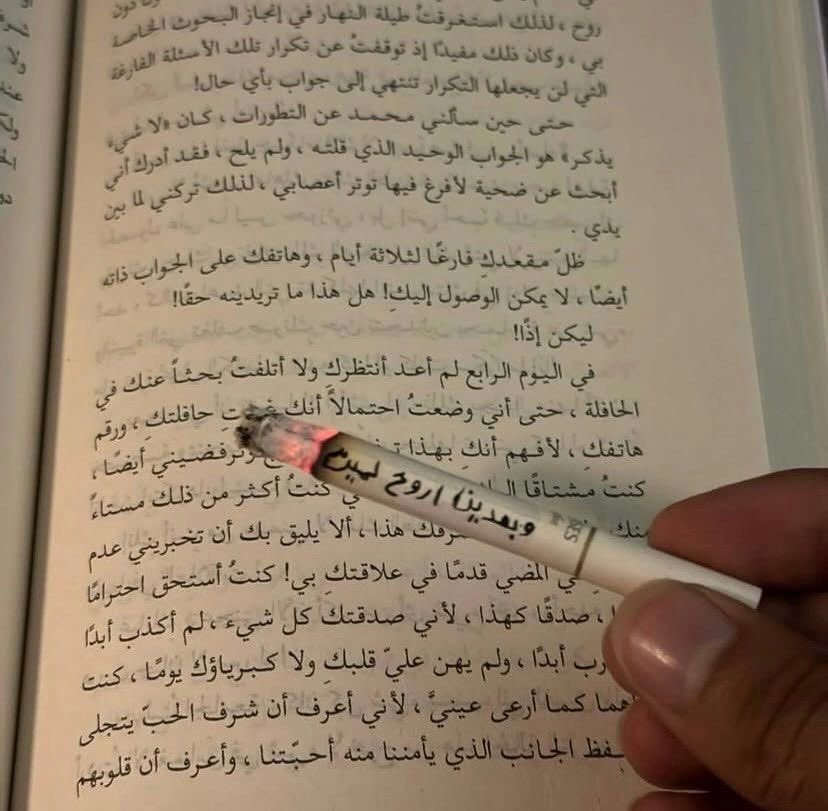 روح ، لذلك استغرقتُ طيلة النهار في إنجاز البحوث الخاصة
بي ، وكان ذلك مفيدًا إذ توقفتُ عن تكرار تلك الأسئلة الفارغة
التي لن يجعلها التكرار تنتهي إلى جواب بأي حال!
حتى حين سألني محمد عن التطورات ، كان «لا شيء
يذكر» هو الجواب الوحيد الذي قلته ، ولم يلح ، فقد أدرك أني
أبحث عن ضحية لأفرغ فيها توتر أعصابي ، لذلك تركني لما بين
يدي .
ظلّ مقعدكِ فارغًا لثلاثة أيام ، وهاتفك على الجواب ذاته
أيضًا ، لا يمكن الوصول إليكِ! هل هذا ما تريدينه حقًا!
ليكن إذًا!
في اليوم الرابع لم أعد أنتظركِ ولا أتلفتُ بحثاً عنك في
الحافلة ، حتى أني وضعتُ احتمالاً أنك حافلتكِ ، ورقم
هاتفكِ ، لأفهم أنكِ بهذا ترفضيني أيضًا ،
كنتُ مشتاقًا كنتُ أكثر من ذلك مستاءً
منك هذا ، ألا يليق بك أن تخبريني عدم
في المضي قدمًا في علاقتكِ بي! كنتُ أستحق احترامًا
، صدقًا كهذا ، لأني صدقتك كل شيء ، لم أكذب أبدًا
أبدًا ، ولم يهن عليّ قلبكِ ولا كبرياؤك يومًا ، كنت
كما أرعى عينيَّ ، لأني أعرف أن شرف الحبّ يتجلى
الجانب الذي يأمننا منه أحبّتنا ، وأعرف أن قلوبهم
وبعدين اروح لمين